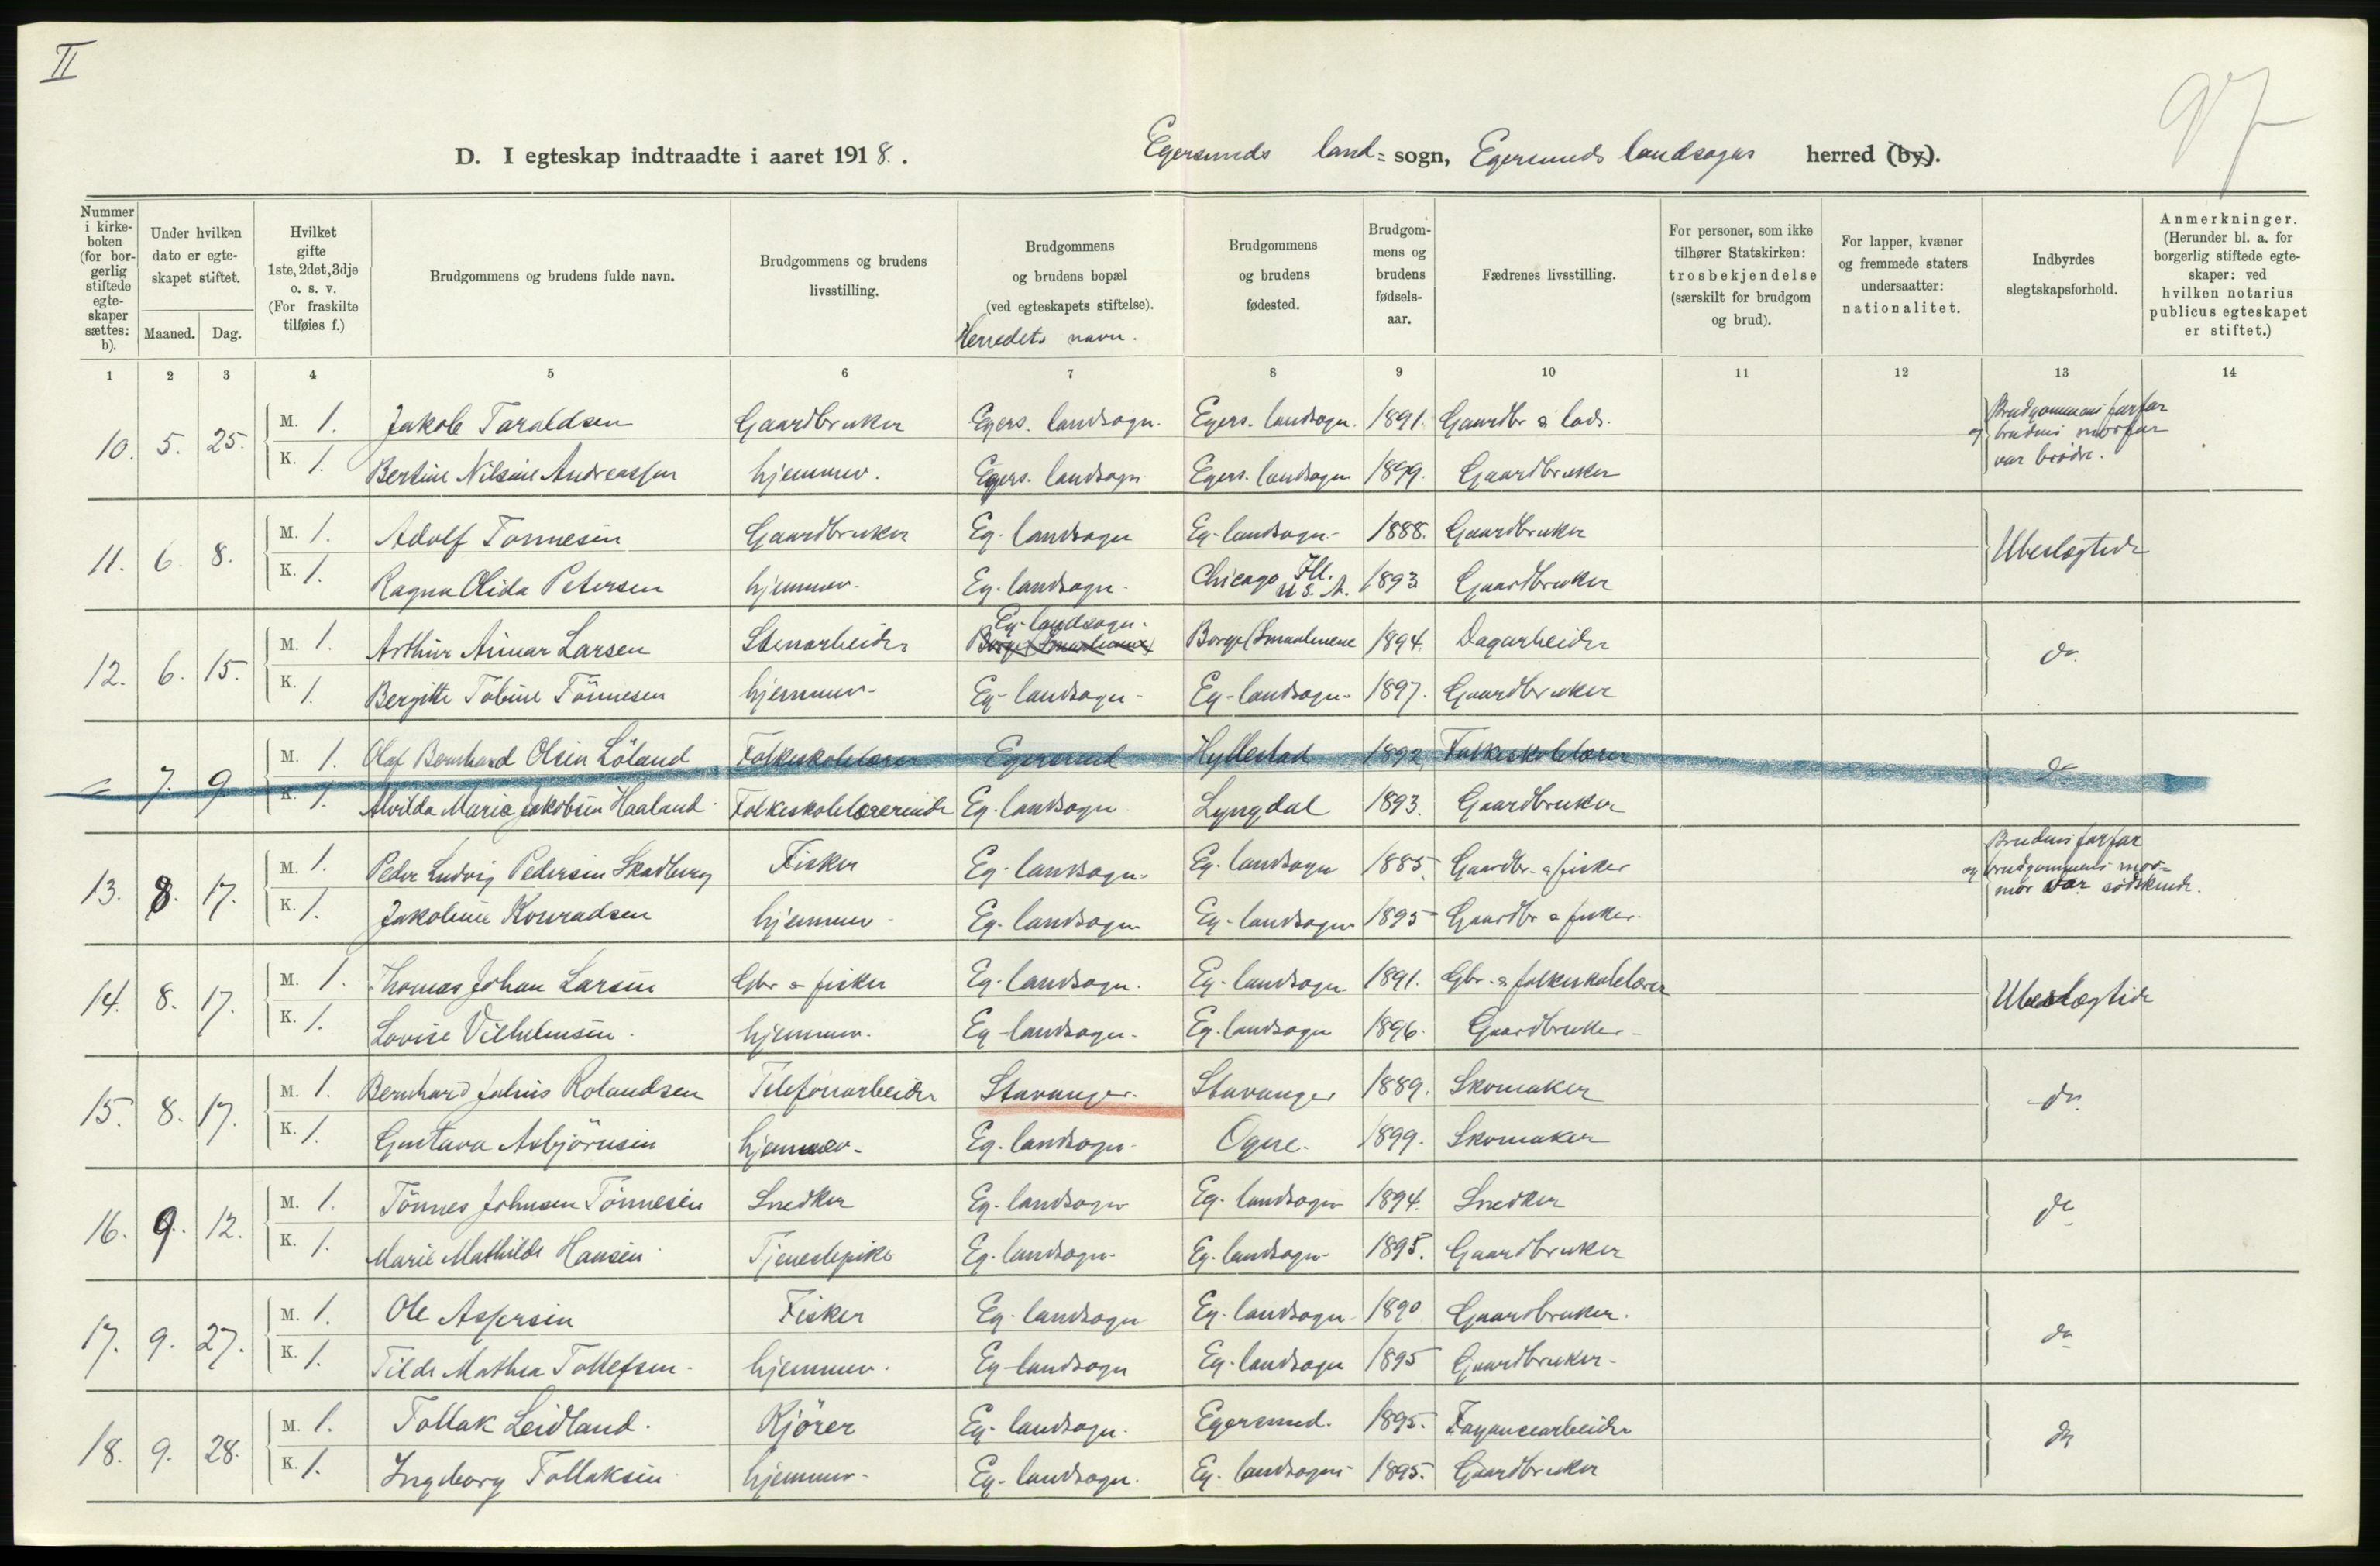 II
97
D. I egteskap indtraadte i aaret 1918. Egersunds land= sogn, Egersunds landsogns herred (by).
Nummer i kirke-boken (for bor-gerlig stiftede egte-skaper sættes: b).
Under hvilken dato er egte-skapet stiftet.
Maaned. Dag.
Hvilket gifte 1ste, 2det, 3dje o. s. v. (For fraskilte tilføies f.)
Brudgommens og brudens fulde navn.
Brudgommens og brudens livsstilling.
Brudgommens og brudens bopæl (ved egteskapets stiftelse).
Herredets navn.
Brudgommens og brudens fødested.
Brudgom-mens og brudens fødsels-aar.
Fædrenes livsstilling.
For personer, som ikke tilhører Statskirken: trosbekjendelse (særskilt for brudgom og brud).
For lapper, kvæner og fremmede staters undersaatter: nationalitet.
Indbyrdes slegtskapsforhold.
Anmerkninger. (Herunder bl. a. for borgerlig stiftede egte-skaper: ved hvilken notarius publicus egteskapet er stiftet.)
1 2 3 4 5 6 7 8 9 10 11 12 13 14
10. 5. 25. M. 1. Jakob Taraldsen Gaardbruker Egers. landsogn. Egers. landsogn. 1891. Gaardbr & lods. Brudgommens farfar og brudens morfar var brødre.
K. 1. Bertine Nilsine Andreassen hjemmev. Egers. landsogn Egers. landsogn 1899. Gaardbruker
11. 6. 8. M. 1. Adolf Tønnesen Gaardbruker Eg. landsogn Eg. landsogn. 1888. Gaardbruker Ubeslægtede
K. 1. Ragna Olida Petersen hjemmev. Eg. landsogn. Chicago Ill. U.S.A. 1893 Gaardbruker
12. 6. 15. M. 1. Arthur Aimar Larsen Stenarbeider Eg. landsogn. Borge (Smaalenene) Borge (Smaalenene 1894. Dagarbeider do.
K. 1. Bergitte Tobine Tönnesen hjemmev. Eg. landsogn. Eg. landsogn. 1897. Gaardbruker
7. 9. M. 1. Olaf Bernhard Olsen Löland Folkeskolelærer Egersund Hyllestad 1892. Folkeskolelærer do
K. 1. Alvilda Marie Jakobsen Haaland. Folkeskolelærerinde Eg. landsogn Lyngdal 1893. Gaardbruker
13. 8. 17. M. 1. Peder Ludvig Pedersen Skadberg Fisker Eg. landsogn. Eg. landsogn 1885. Gaardbr. & fisker Brudens farfar og brudgommens mor=mor var sødskende.
K. 1. Jakobine Konradsen hjemmev. Eg. landsogn Eg. landsogn 1895 Gaardbr & fisker.
14. 8. 17. M. 1. Thomas Johan Larsen Gbr & fisker Eg. landsogn. Eg. landsogn 1891. Gbr. & folkeskolelærer Ubeslægtede
K. 1. Lovise Vilhelmsen. hjemmev. Eg. landsogn. Eg. landsogn 1896. Gaardbruker.
15. 8. 17. M. 1. Bernhard Julius Rolandsen Telefonarbeider Stavanger. Stavanger 1889. Skomaker do.
K. 1. Gustava Asbjörnsen hjemmev. Eg. landsogn. Ogne. 1899. Skomaker
16. 9. 12. M. 1. Tönnes Johnsen Tönnesen Snedker Eg. landsogn Eg. landsogn 1894. Snedker do
K. 1. Marie Mathilde Hansen Tjenestepike Eg. landsogn. Eg. landsogn 1895. Gaardbruker
17. 9. 27. M. 1. Ole Aspersen Fisker Eg. landsogn Eg. landsogn 1890 Gaardbruker. do
K. 1. Tilde Mathea Tollefsen. hjemmev. Eg. landsogn Eg. landsogn 1895 Gaardbruker.
18. 9. 28. M. 1. Tollak Leidland. Kjörer Eg. landsogn. Egersund. 1895. Fayancearbeider do
K. 1. Ingeborg Tollaksen hjemmev. Eg. landsogn. Eg. landsogn 1895. Gaardbruker